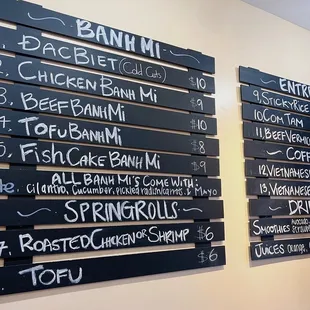 BANH MI
1. ĐACBIET (Cold Cuts) $10
2. CHICKEN BANH MI $9
3. BEEF BANH MI $10
4. TOFU BANH MI $8
5. FISH CAKE BANH MI $9
ALL BANH MI'S COME WITH:
Cilantro, Cucumber, pickled radish/carrots, & Mayo
SPRING ROLLS
ROASTED CHICKEN OR SHRIMP $6
TOFU $6
ENTRE
9. STICKY RICE
10. COM TAM
11. BEEF VERMIC
COFF
12. VIETNAMESE
13. VIETNAMESE
DRI
SMOOTHIES Avocado
JUICES orange,